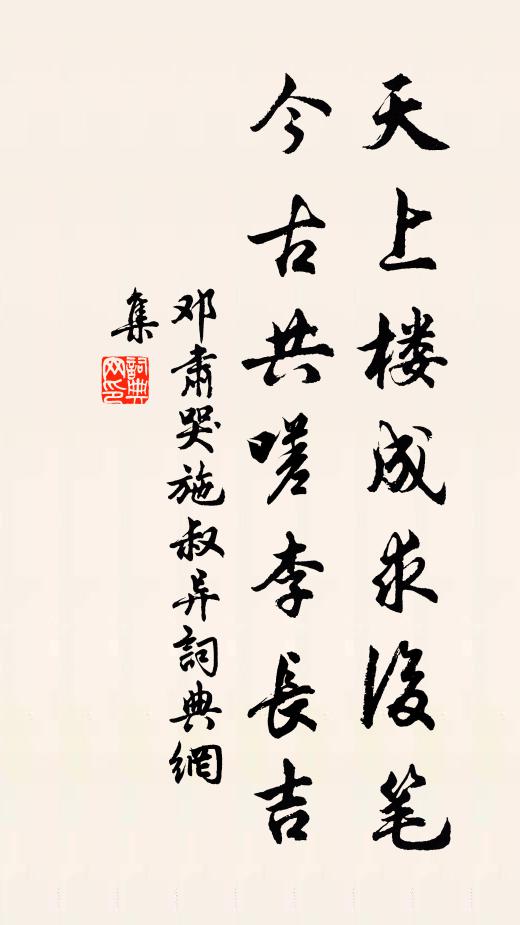 天上楼成求後笔
今古共嗟李長吉
邓肃哭施叔异詞典網
集
詞典网印